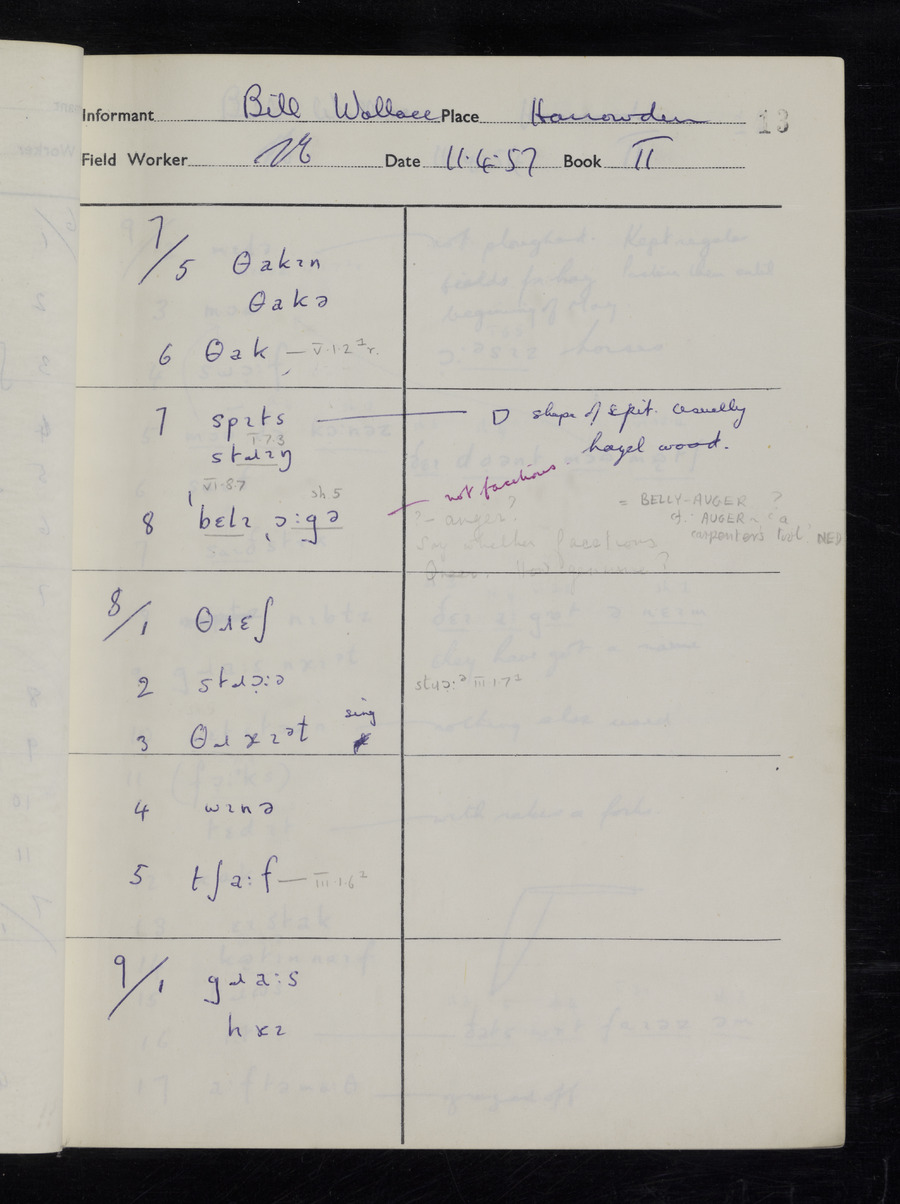 Informant Bill Wallace Place Harrowden 13
Field Worker Date 11·4·57 Book II
7/5 θakɪn
θakə
6 θak — V·1·2
7 spɪts D shape of spit. usually
I·7·3
hazel wood.
stɹɪŋ
VI·8·7 sh. 5 not facetious
8 ˈbɛlɪ ɔ:gə = BELLY-AUGER ?
?- auger ? cf. AUGER - a
carpenter's tool NED
Say whether facetious
8/1 θɹɛʃ
2 stɹɔ:ə III·1·7
sing
3 θɹ
4 wɪnə
5 tʃa:f — III·1·6
9/1 gɹa:s